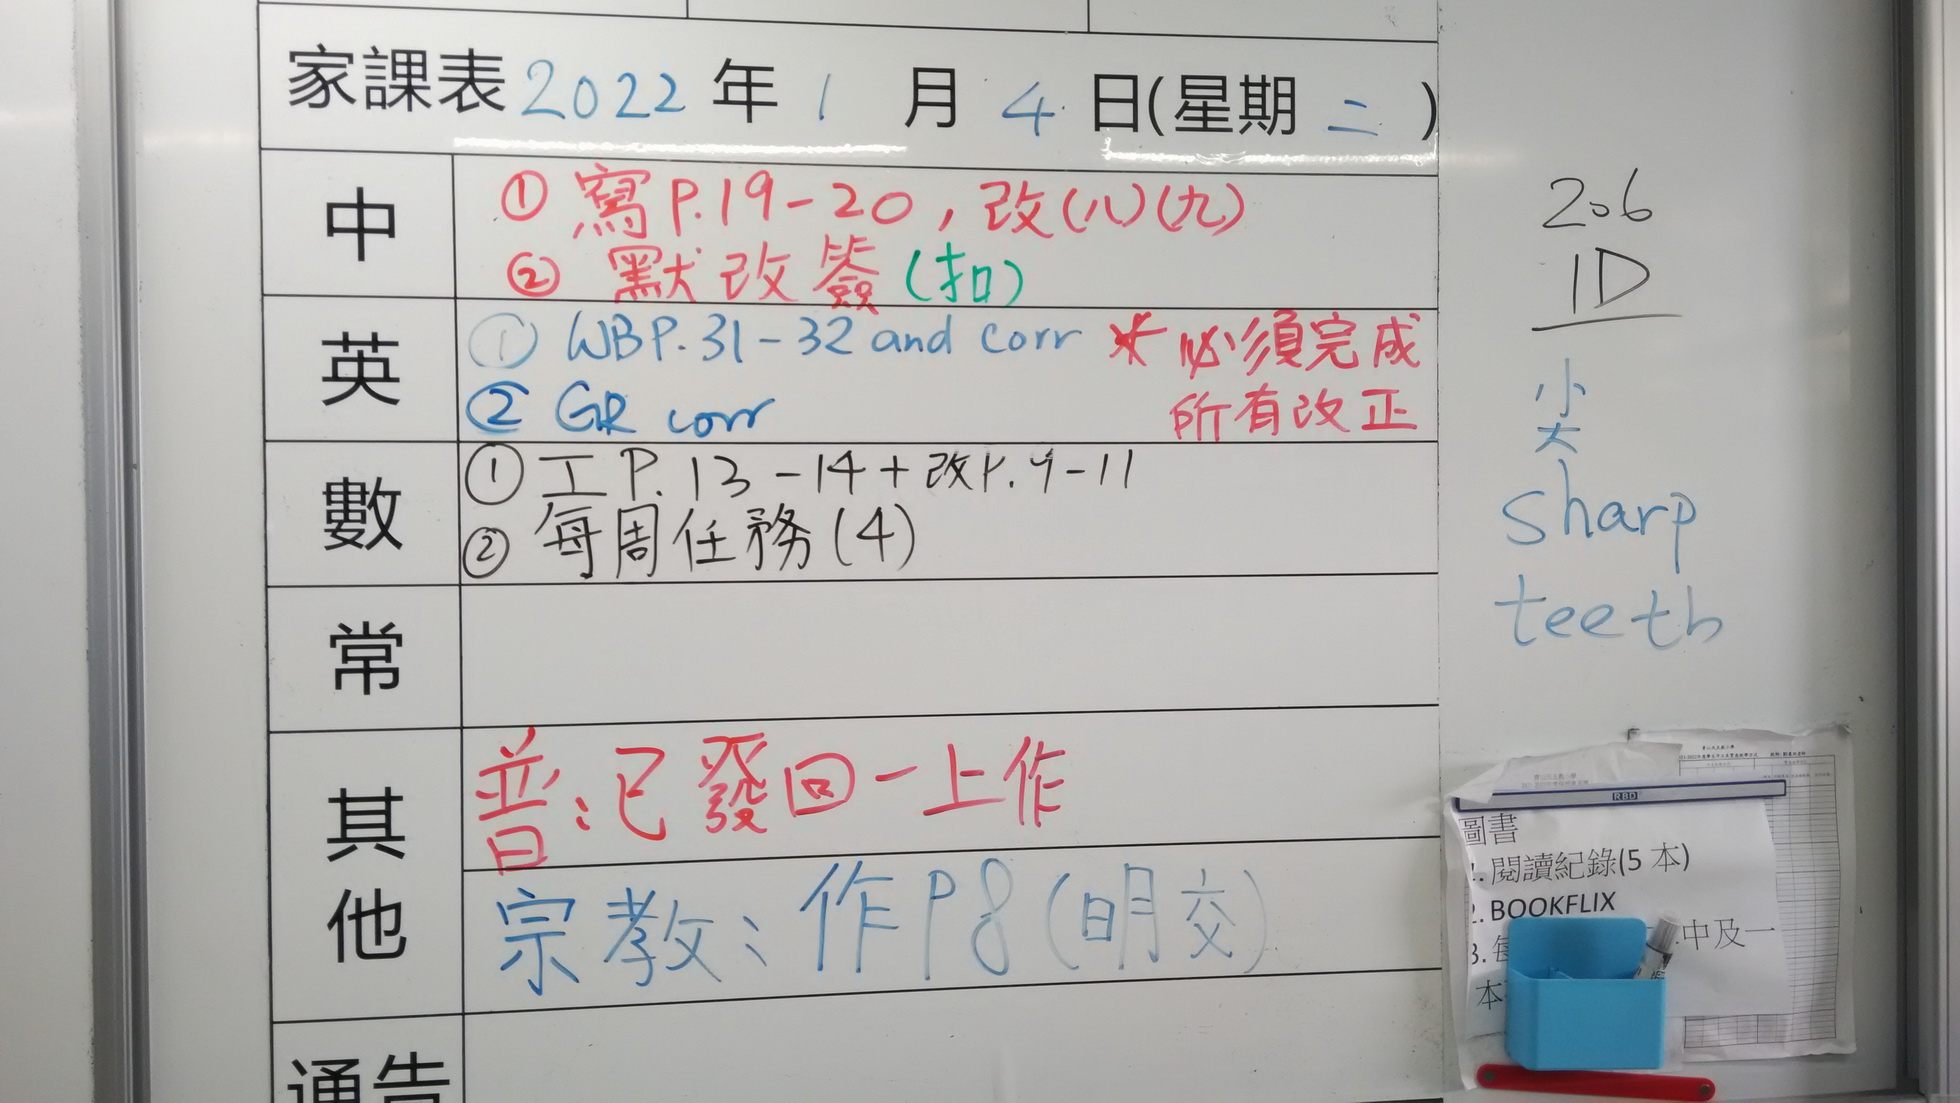 家課表 2022 年 1 月 4 日(星期 二 )
中
① 寫P.19-20, 改(八)(九)
② 默改簽(扣)
英
① WBP.31-32 and corr
② GR corr
* 必須完成
所有改正
數
① 工P.13-14+改P.9-11
② 每周任務(4)
常
其他
普:已發回一上作
宗教:作P8(明交)
通告
206
1D
小
大
sharp
teeth
RBD
圖書
1. 閱讀紀錄(5 本)
2. BOOKFLIX
3. 每
中及一
本